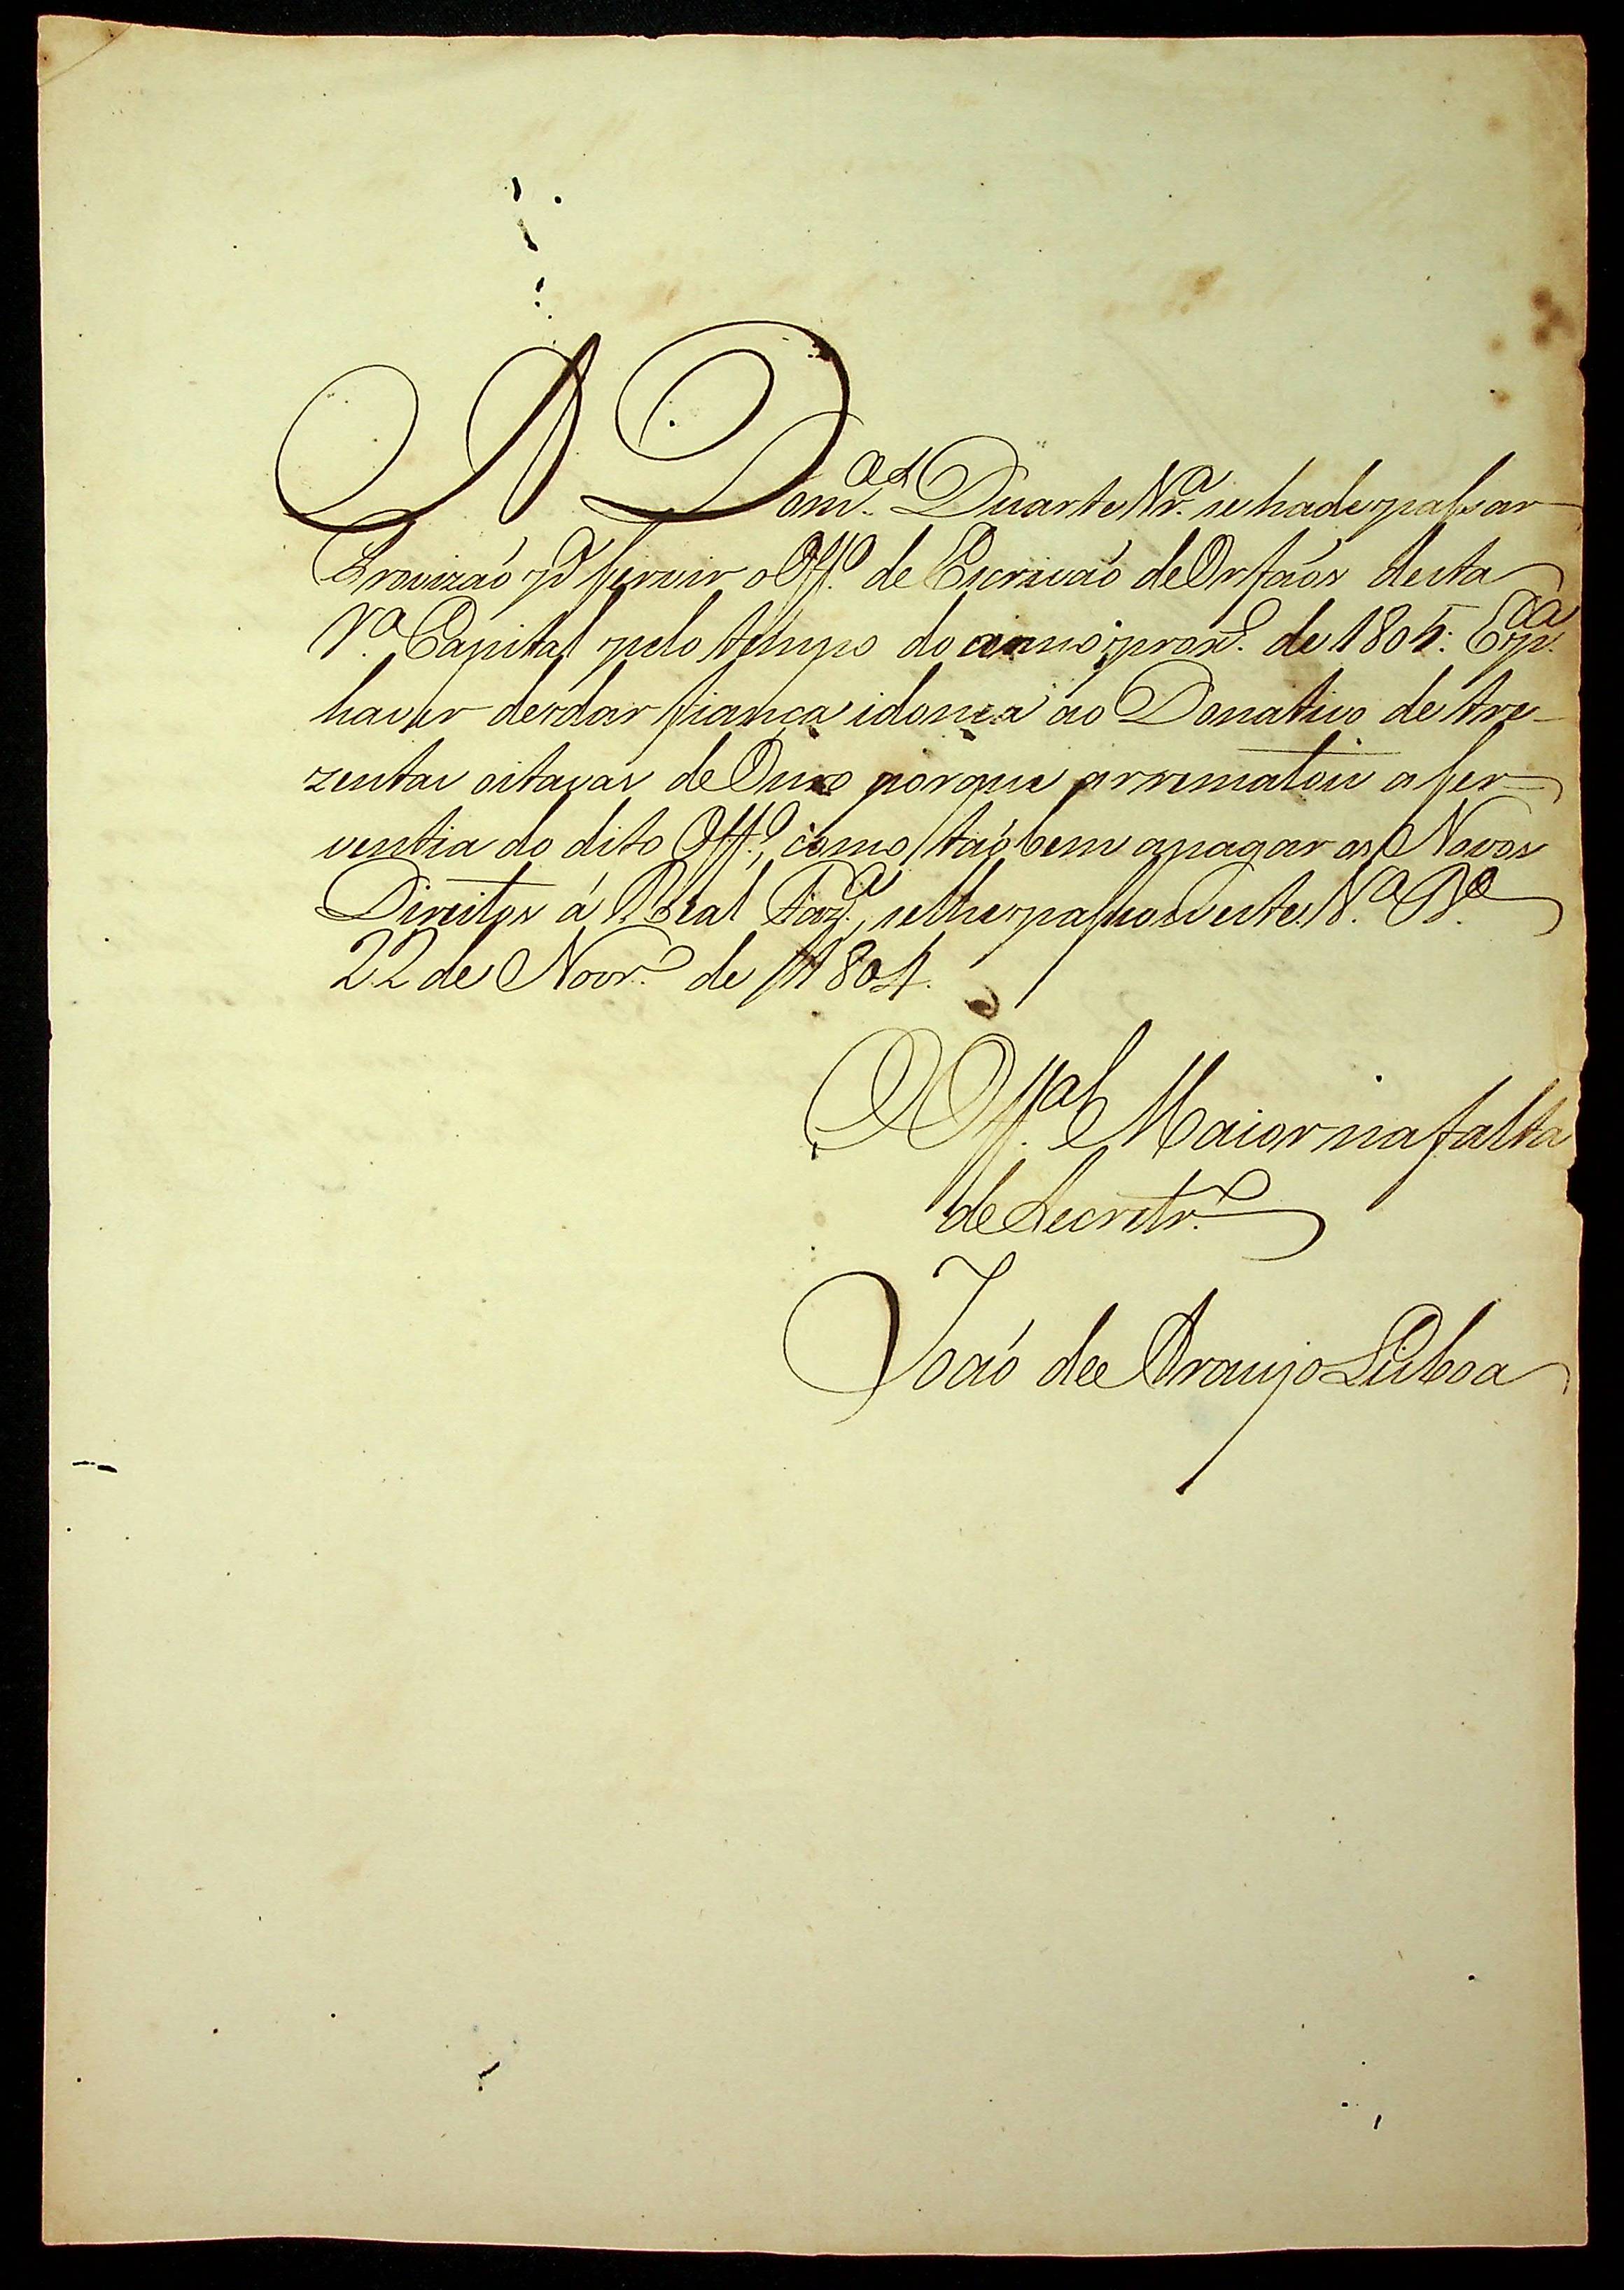 A Dom.os Duarte Nr.a se hade passar
Provizaó p.a servir o Off.o de Escrivaó de Orfaós desta
V.a Capital pelo tempo do anno prox.o de 1805: E p.a
haver de dar fiança idonea ao Donativo de tre-
zentas oitavas de Ouro porque arrematou a ser-
ventia do dito Off.o, como taóbem apagar os Novos
Direitos á Real Faz.a, selhe passou este. V.a B.a
22 de Novr.o de 1804.
O Off.al Maior na falta
de Secretr.o
Joaó de Araujo Lisboa